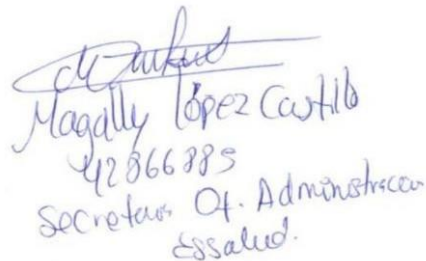 Magally López Castillo
42866885
Secretaria Of. Administracion
Essalud.